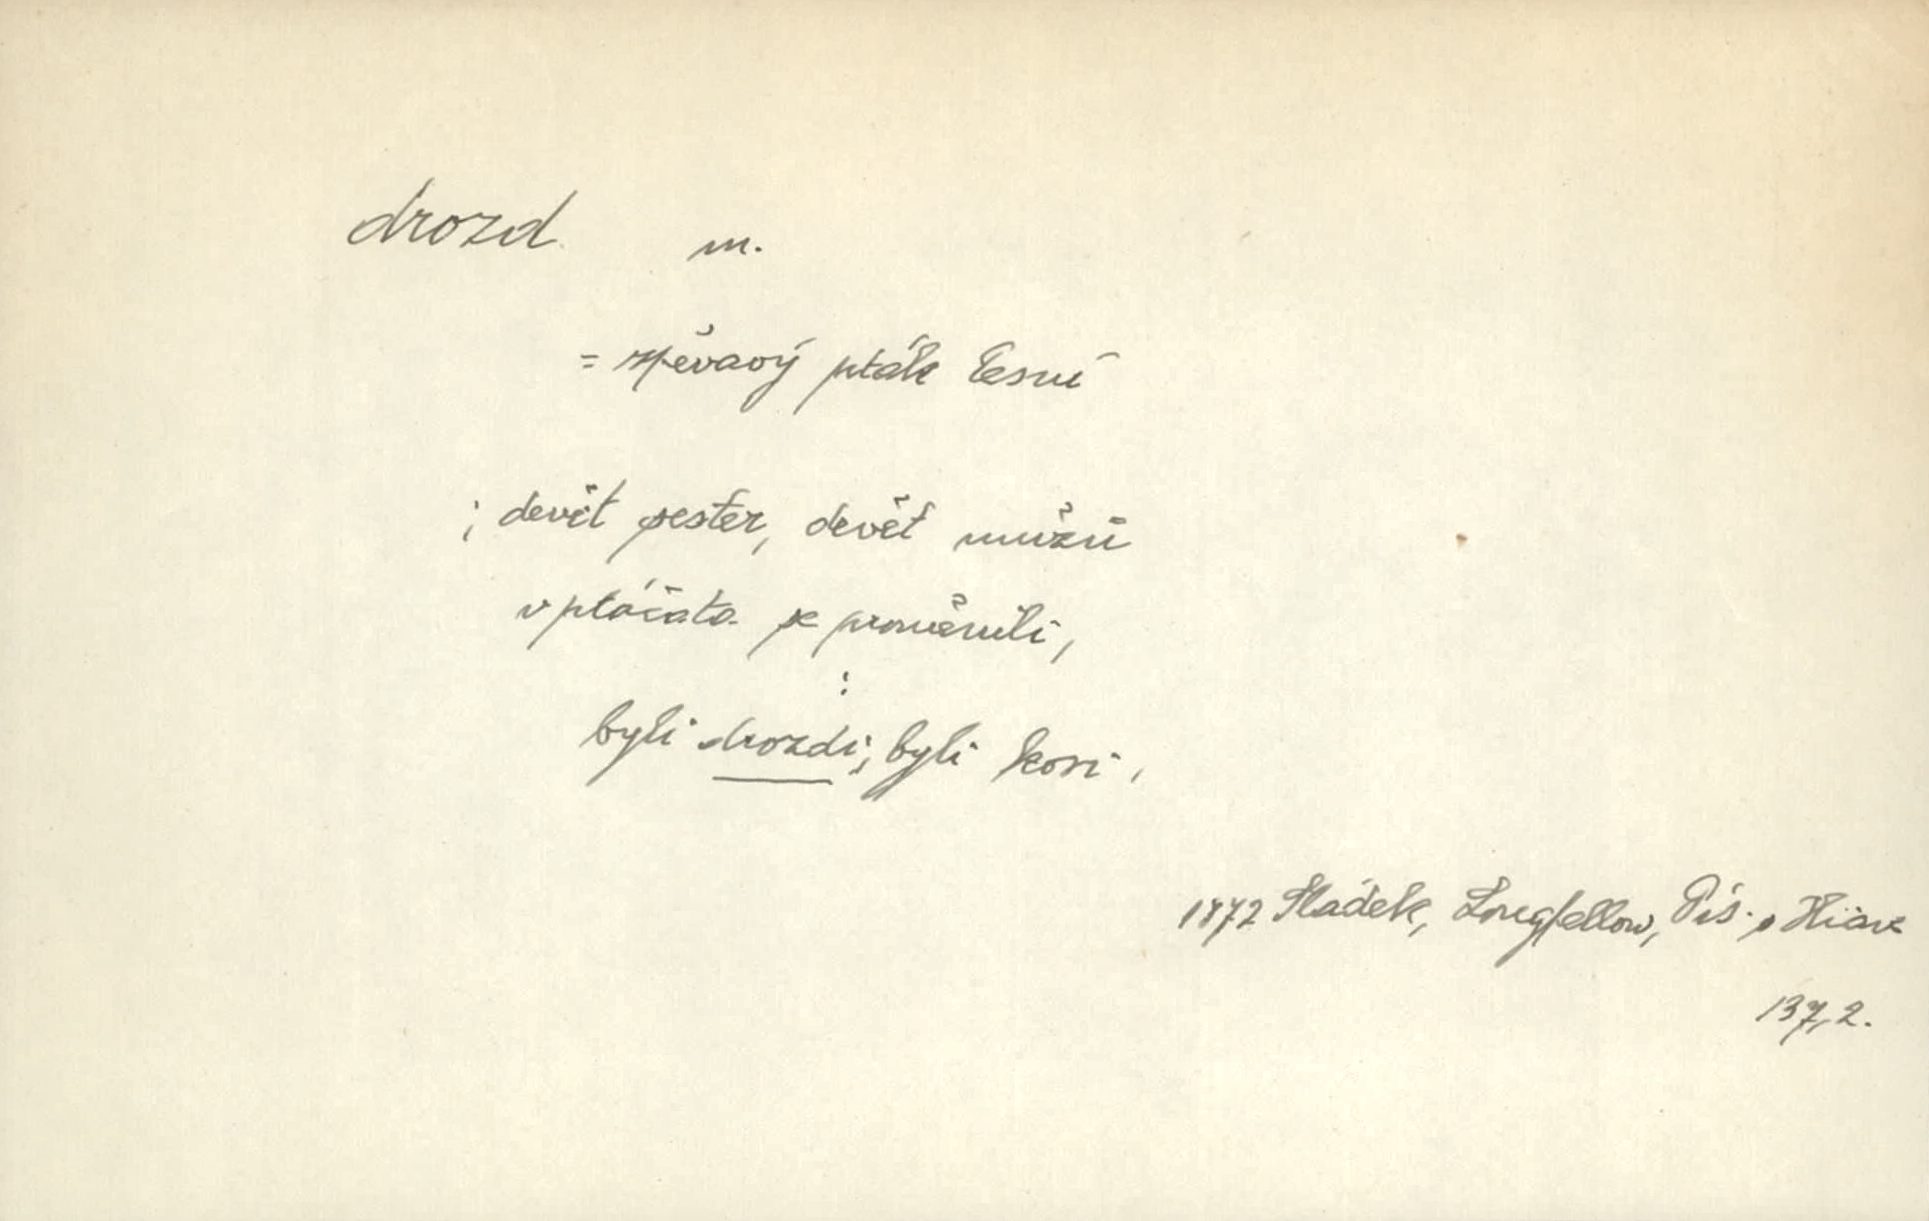 drozd m.
= zpěvavý pták lesní
; devět sester, devět mužů
v ptáčata se proměnili,
:
byli drozdi; byli kosi,
1872 Sládek, Longfellow, Pís. o Hiaw
137,2.